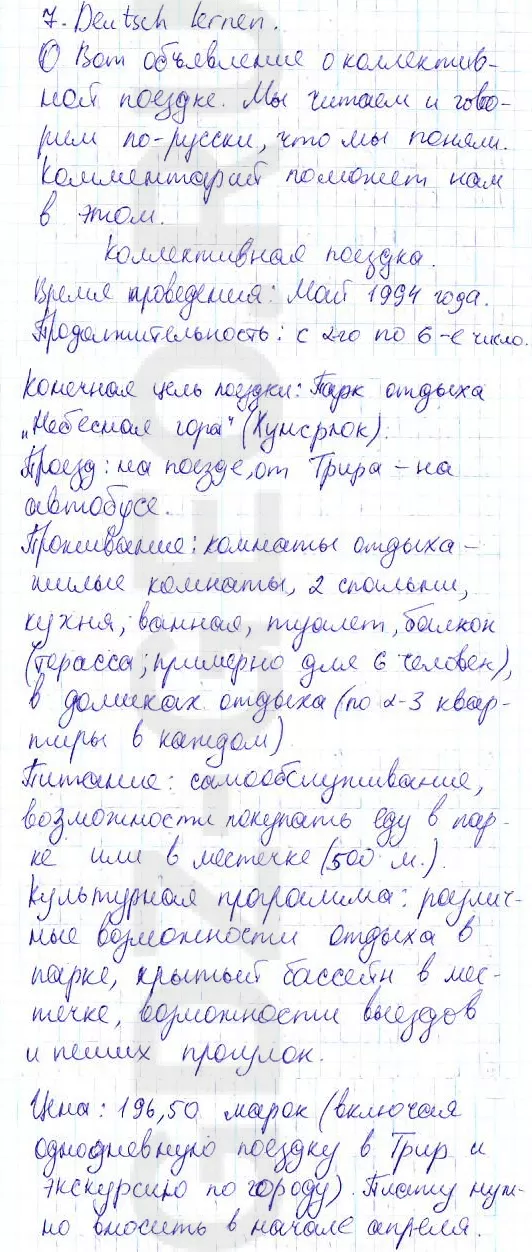 7. Deutsch lernen.
О Вот объявление о коллектив-
ной поездке. Мы читаем и гово-
рим по-русски, что мы поняли.
Комментарий поможет нам
в этом.
Коллективная поездка.
Время проведения: Май 1994 года.
Продолжительность: с 2го по 6-е число.
Конечная цель поездки: Парк отдыха
„Небесная гора" (Хунсрюк).
Проезд: на поезде, от Трира - на
автобусе.
Проживание: комнаты отдыха -
жилые комнаты, 2 спальни,
кухня, ванная, туалет, балкон
(терасса; примерно для 6 человек),
в домиках отдыха (по 2-3 квар-
тиры в каждом)
Питание: самообслуживание,
возможности покупать еду в пар-
ке или в местечке (500 м.).
Культурная программа: различ-
ные возможности отдыха в
парке, крытый бассейн в мес-
течке, возможности выездов
и пеших прогулок.
Цена: 196,50 марок (включая
однодневную поездку в Трир и
экскурсию по городу). Плату нуж-
но вносить в начале апреля.
GDZ-GEO.RU